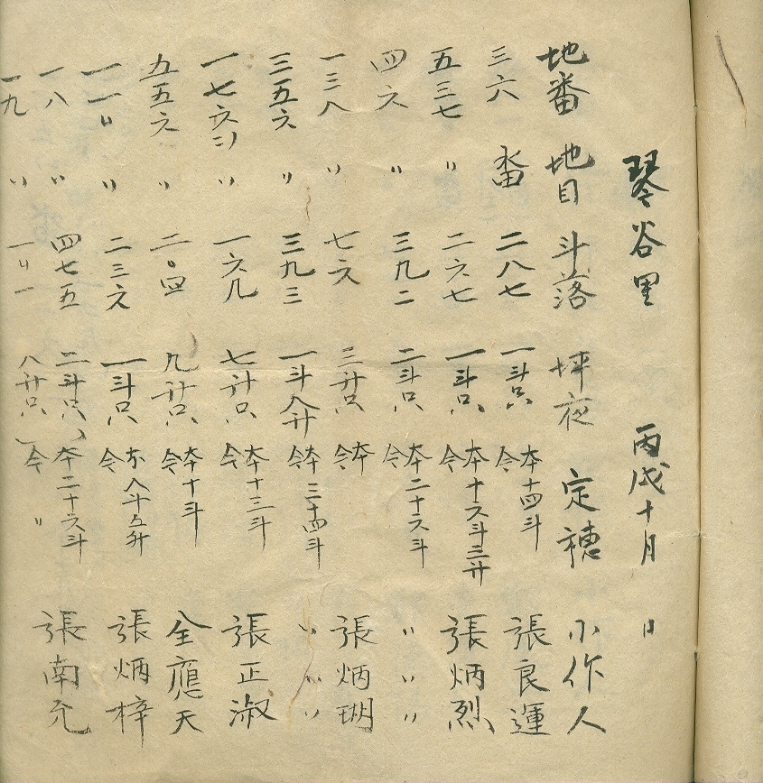 琴谷里 丙戌十月 日
地番 地目 斗落 坪夜 定穗 小作人
三六 畓 二八七 一斗只 本十四斗 令 張良運
五三七 〃 二六七 一斗只 本十六斗三升 令 張炳烈
四六 〃 三九二 二斗只 本二十六斗 令 〃〃〃
一三八 〃 七六 三升只 本 令 張炳瑚
三五六 〃 三九三 一斗八升 本三十四斗 令 〃〃〃
一七六 〃 一六九 七升只 本十三斗 令 張正淑
九五六 〃 二〇四 九升只 本十斗 令 全應天
一一〃 〃 二三六 一斗只 本八斗五升 令 張炳梓
一八 〃 四七五 二斗只 本二十六斗 令 〃 張南允
一九 〃 一〃一 八升只